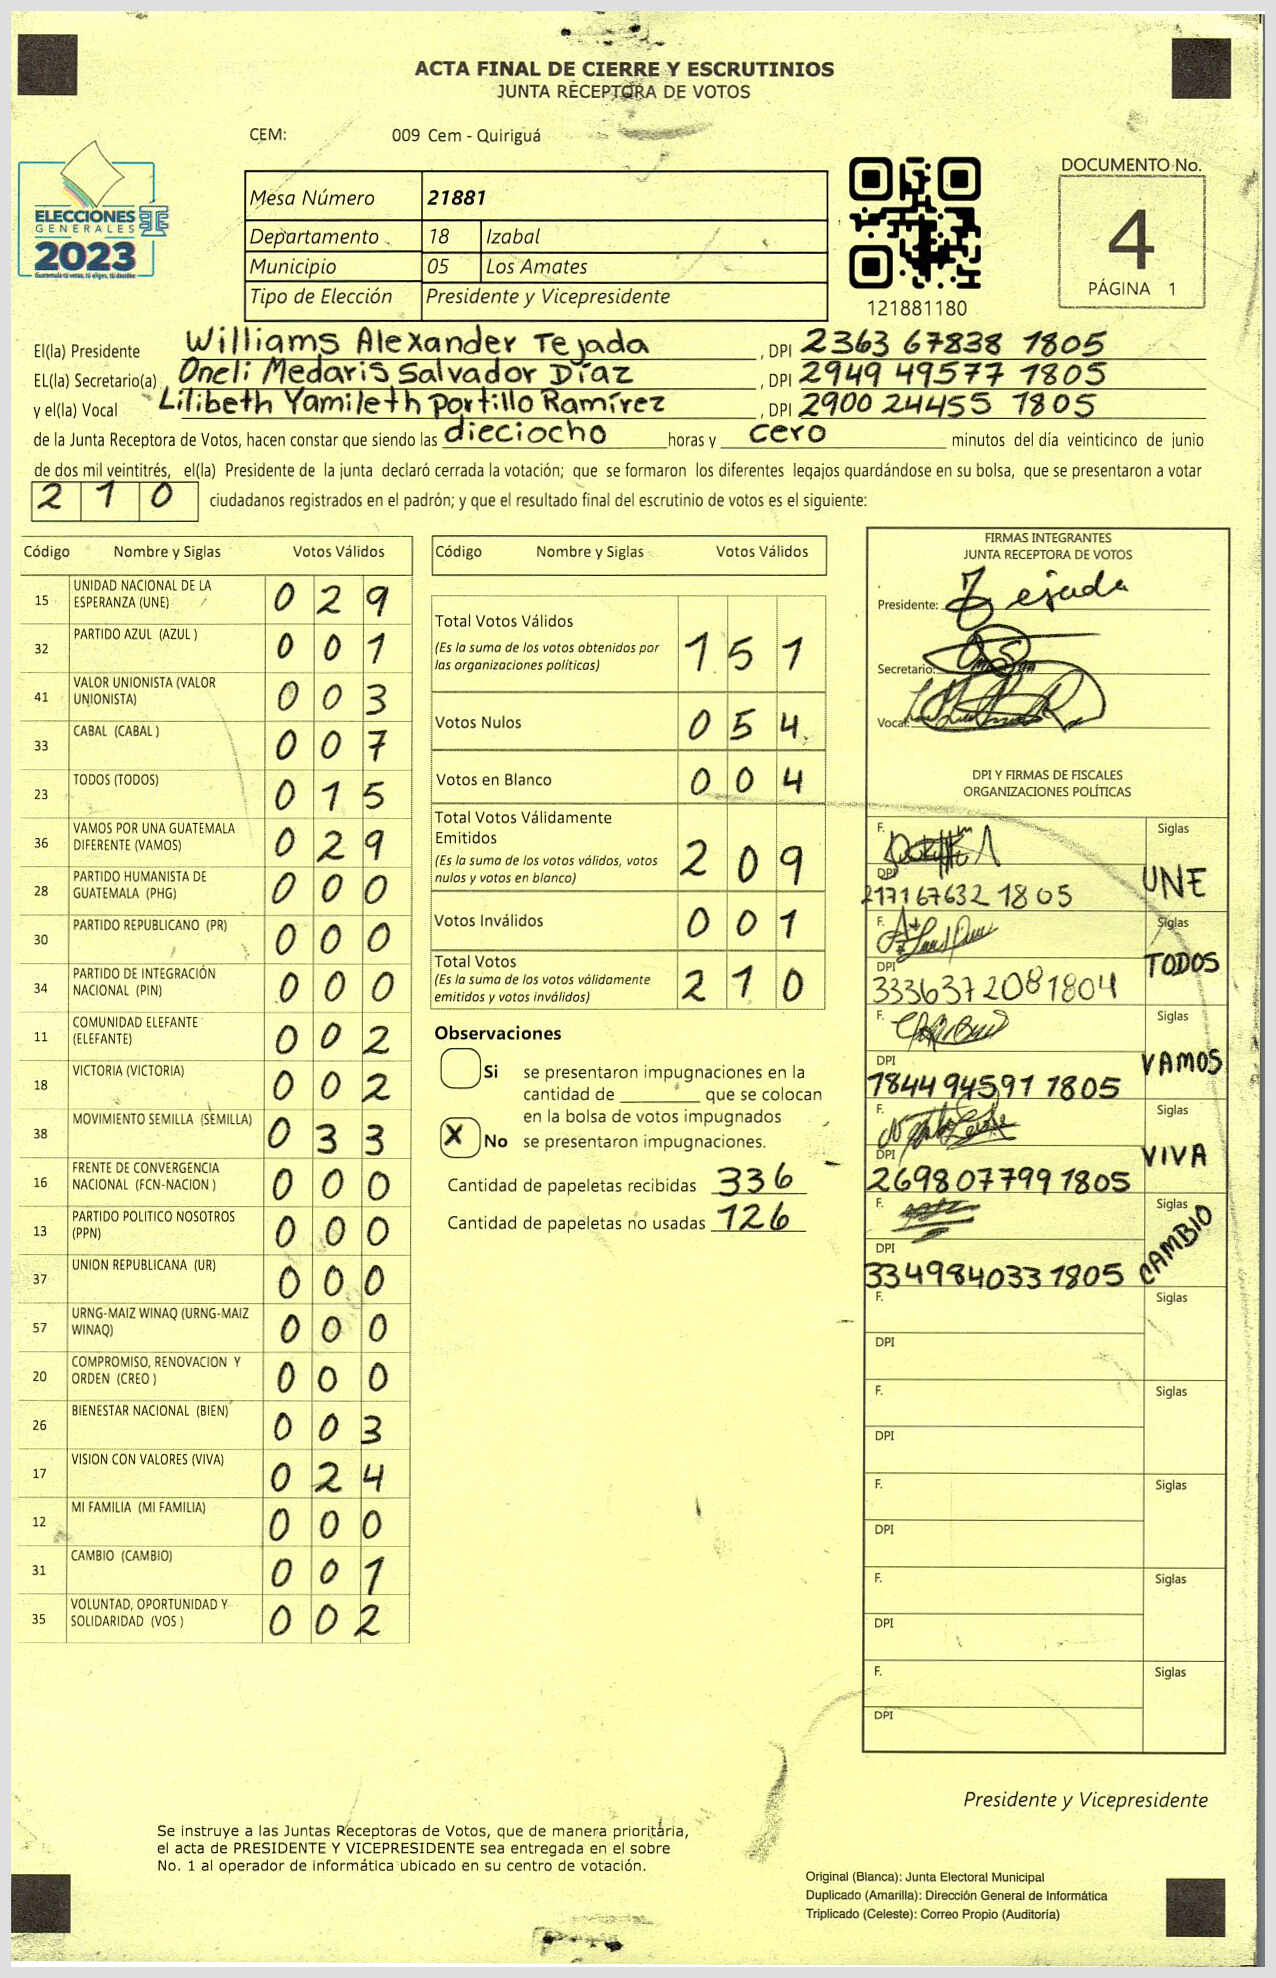 ACTA FINAL DE CIERRE Y ESCRUTINIOS
JUNTA RECEPTORA DE VOTOS
CEM: 009 Cem - Quiriguá
ELECCIONES
GENERALES
2023
Guatemala tú votas, tú eliges, tú decides
Mesa Número 21881
Departamento 18 Izabal
Municipio 05 Los Amates
Tipo de Elección Presidente y Vicepresidente
121881180
DOCUMENTO No.
4
PÁGINA 1
El(la) Presidente Williams Alexander Tejada , DPI 2363 67838 1805
EL(la) Secretario(a) Oneli Medaris Salvador Díaz , DPI 2949 49577 1805
y el(la) Vocal Lilibeth Yamileth Portillo Ramírez , DPI 2900 24455 1805
de la Junta Receptora de Votos, hacen constar que siendo las dieciocho horas y cero minutos del día veinticinco de junio
de dos mil veintitrés, el(la) Presidente de la junta declaró cerrada la votación; que se formaron los diferentes legajos guardándose en su bolsa, que se presentaron a votar
210 ciudadanos registrados en el padrón; y que el resultado final del escrutinio de votos es el siguiente:
Código Nombre y Siglas Votos Válidos
15 UNIDAD NACIONAL DE LA ESPERANZA (UNE) 0 2 9
32 PARTIDO AZUL (AZUL ) 0 0 1
41 VALOR UNIONISTA (VALOR UNIONISTA) 0 0 3
33 CABAL (CABAL ) 0 0 7
23 TODOS (TODOS) 0 1 5
36 VAMOS POR UNA GUATEMALA DIFERENTE (VAMOS) 0 2 9
28 PARTIDO HUMANISTA DE GUATEMALA (PHG) 0 0 0
30 PARTIDO REPUBLICANO (PR) 0 0 0
34 PARTIDO DE INTEGRACIÓN NACIONAL (PIN) 0 0 0
11 COMUNIDAD ELEFANTE (ELEFANTE) 0 0 2
18 VICTORIA (VICTORIA) 0 0 2
38 MOVIMIENTO SEMILLA (SEMILLA) 0 3 3
16 FRENTE DE CONVERGENCIA NACIONAL (FCN-NACION ) 0 0 0
13 PARTIDO POLITICO NOSOTROS (PPN) 0 0 0
37 UNION REPUBLICANA (UR) 0 0 0
57 URNG-MAIZ WINAQ (URNG-MAIZ WINAQ) 0 0 0
20 COMPROMISO, RENOVACION Y ORDEN (CREO ) 0 0 0
26 BIENESTAR NACIONAL (BIEN) 0 0 3
17 VISION CON VALORES (VIVA) 0 2 4
12 MI FAMILIA (MI FAMILIA) 0 0 0
31 CAMBIO (CAMBIO) 0 0 1
35 VOLUNTAD, OPORTUNIDAD Y SOLIDARIDAD (VOS ) 0 0 2
Código Nombre y Siglas Votos Válidos
Total Votos Válidos 1 5 1
(Es la suma de los votos obtenidos por
las organizaciones políticas)
Votos Nulos 0 5 4
Votos en Blanco 0 0 4
Total Votos Válidamente
Emitidos 2 0 9
(Es la suma de los votos válidos, votos
nulos y votos en blanco)
Votos Inválidos 0 0 1
Total Votos 2 1 0
(Es la suma de los votos válidamente
emitidos y votos inválidos)
Observaciones
Si se presentaron impugnaciones en la
cantidad de ________ que se colocan
en la bolsa de votos impugnados
X No se presentaron impugnaciones.
Cantidad de papeletas recibidas 336
Cantidad de papeletas no usadas 126
FIRMAS INTEGRANTES
JUNTA RECEPTORA DE VOTOS
Presidente: Tejada
Secretario:
Vocal:
DPI Y FIRMAS DE FISCALES
ORGANIZACIONES POLÍTICAS
F. Siglas
DPI UNE
2171676321805
F. Siglas
DPI TODOS
3336372081804
F. Siglas
DPI VAMOS
1844945911805
F. Siglas
DPI VIVA
2698077991805
F. Siglas
DPI CAMBIO
3349840331805
F. Siglas
DPI
F. Siglas
DPI
F. Siglas
DPI
F. Siglas
DPI
F. Siglas
DPI
Presidente y Vicepresidente
Se instruye a las Juntas Receptoras de Votos, que de manera prioritaria,
el acta de PRESIDENTE Y VICEPRESIDENTE sea entregada en el sobre
No. 1 al operador de informática ubicado en su centro de votación.
Original (Blanca): Junta Electoral Municipal
Duplicado (Amarilla): Dirección General de Informática
Triplicado (Celeste): Correo Propio (Auditoría)